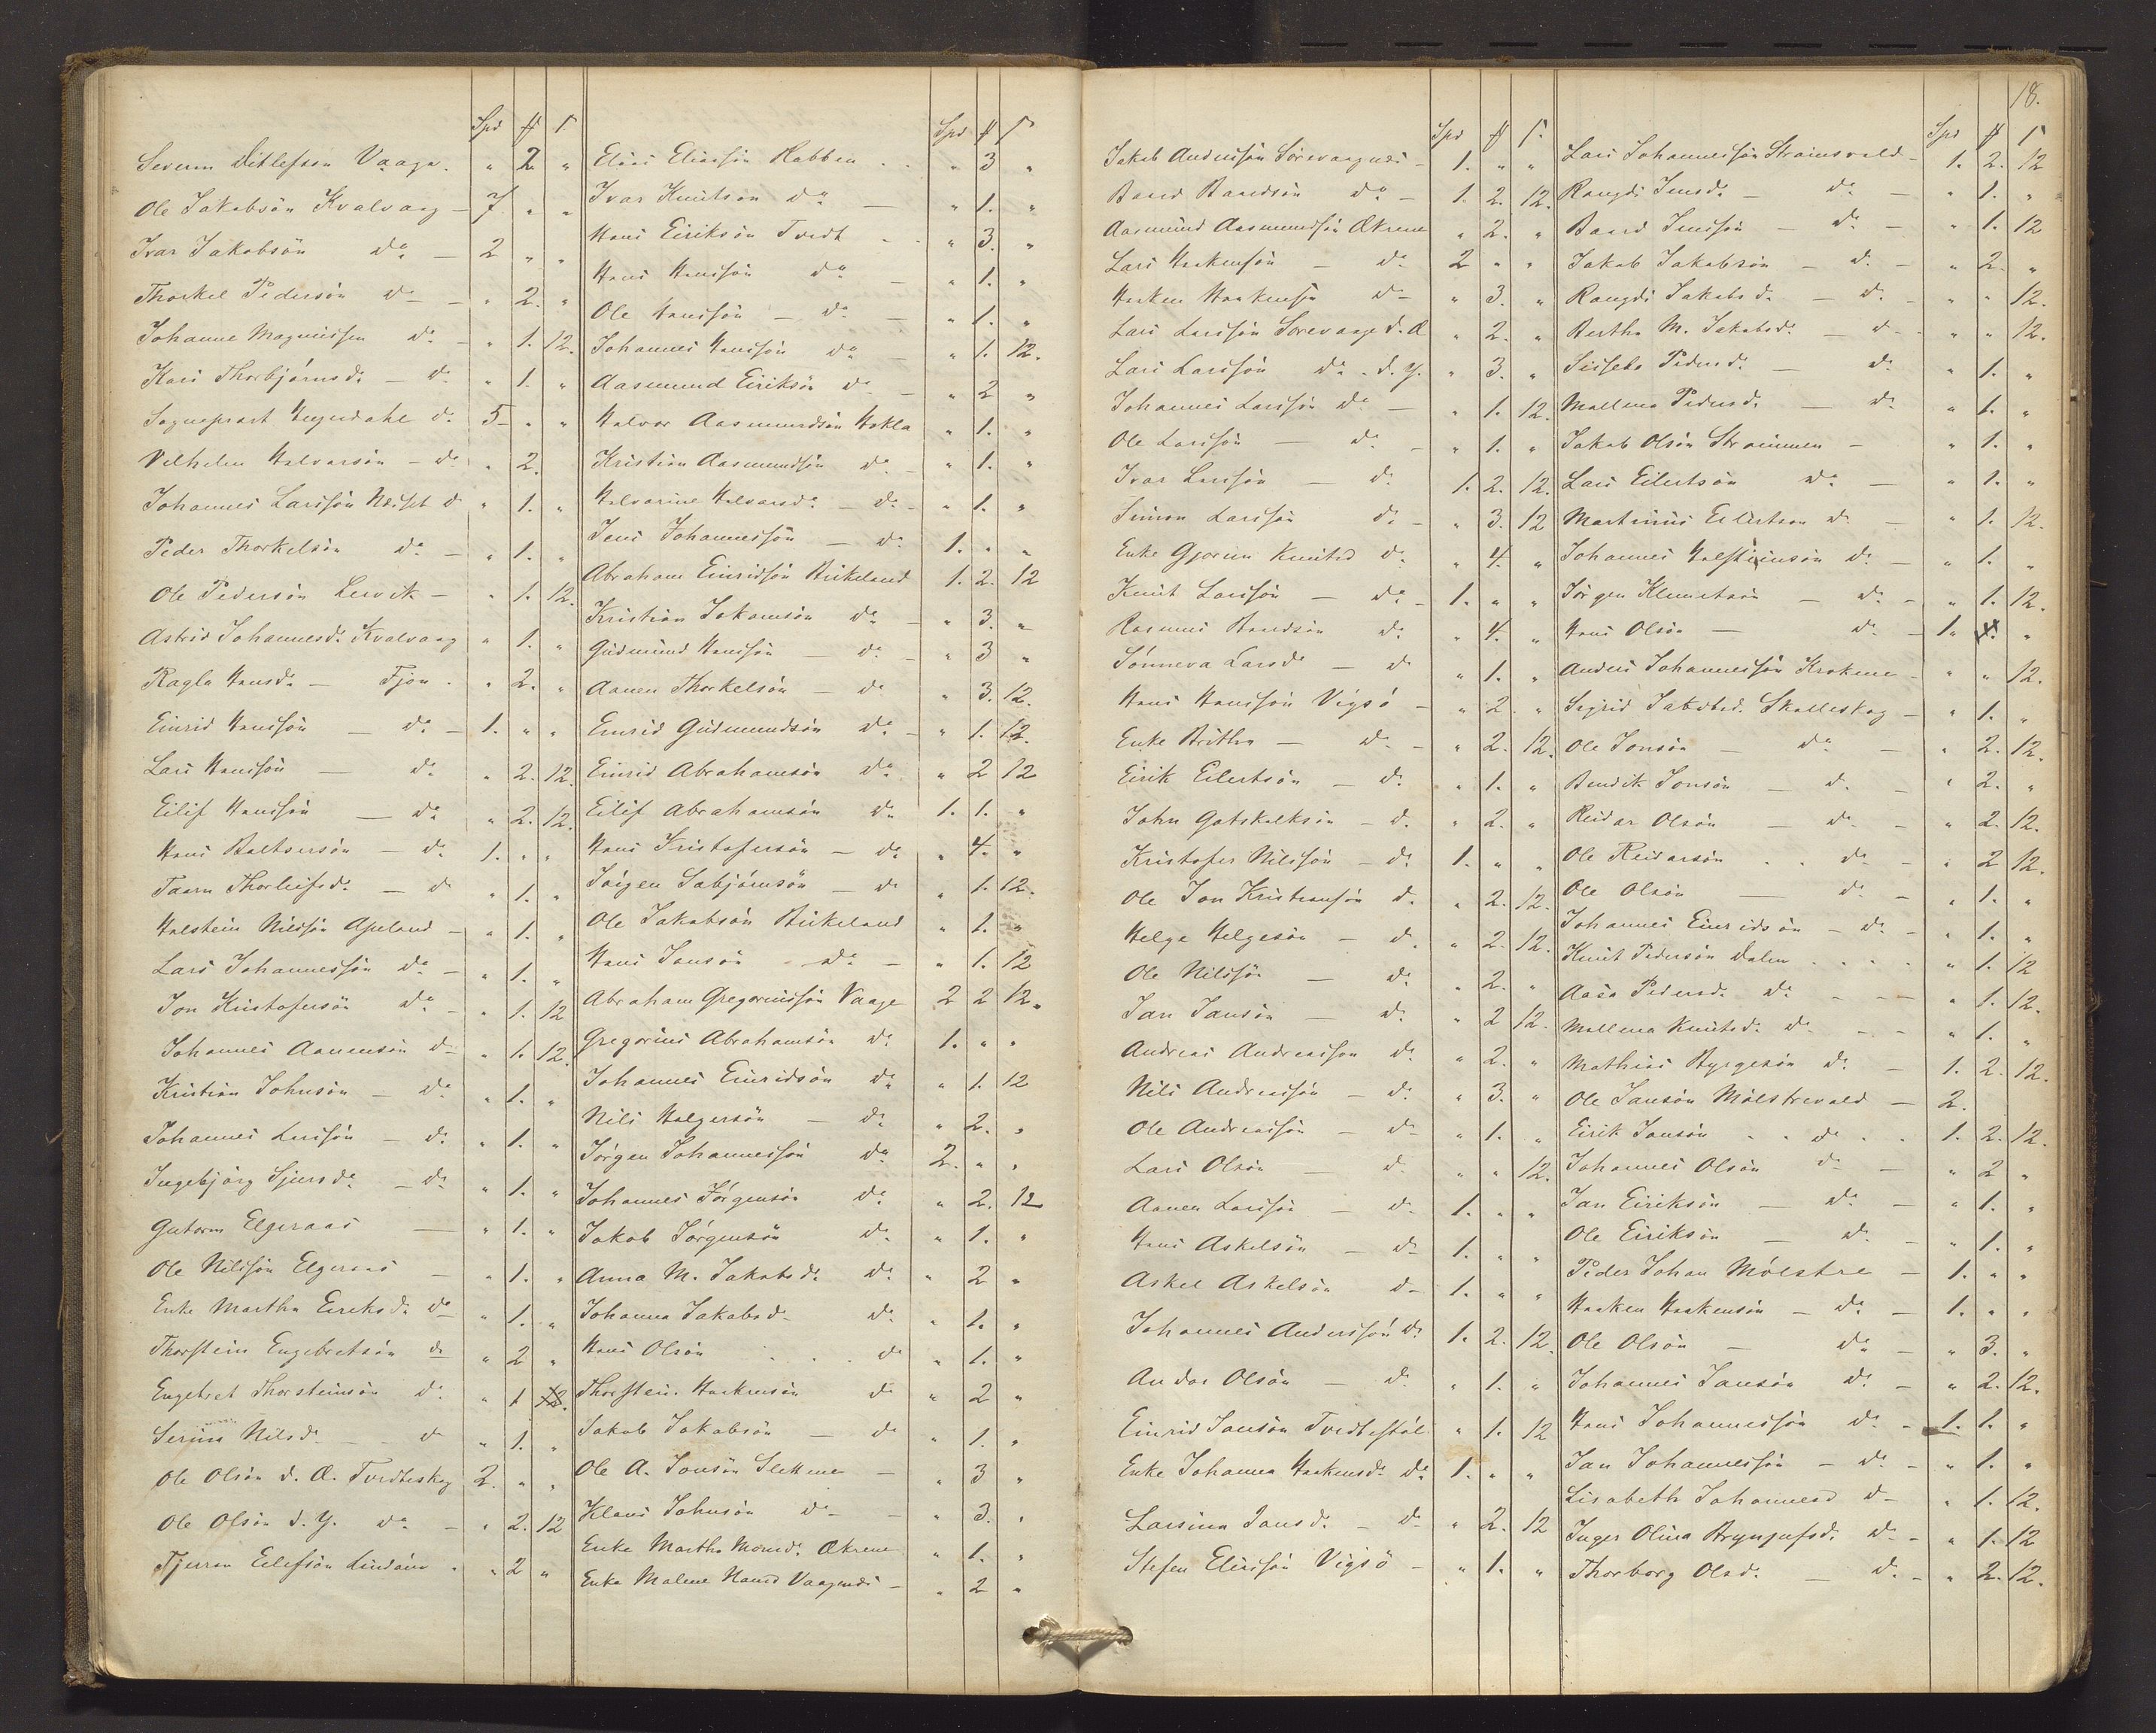 18.
Spd # ſ
Severin Ditlefsen Vaage. " 2 "
Ole Jakobsön Kvalvaag - 7. " "
Ivar Jakobsön do - 2 " "
Thorkel Pedersön do - " 2. "
Johanne Magnussen do - " 1. 12.
Kari Thorbjörnsd. - do " 1. "
Sogneprest do 5 - " "
Vilhelm Halvorsön - do " 2.
Johannes Larssön do " 1. "
Peder Thorkelsön do - " 1. "
Ole Pedersön Lervik - " 1. 12.
Astrid Johannesd. Kvalvaag " 1. "
Ragla Hansd. - Fjon. " 2. "
Einrid Hanssön - do - 1. " "
Lars Hanssön - do " 2. 12.
Eilif Hanssön - do " 2. 12.
Hans Baltsersön - do 1. " "
Taarn Thorleifsd. - do " 1. "
Halstein Nilssön Apeland - " 1. "
Lars Johannessön do - " 1. "
Jon Kristofersön do - " 1. 12
Johannes Aanensön do " 1. 12.
Kristian Johnsön - do " 1. "
Johannes Larssön - do " 1. "
Ingebjörg Sjursd. - do " 1. "
Gutorm Elgeraas - " 1. "
Ole Nilssön Elgeraas - " 1. "
Enke Martha Eireksd. do " 1. "
Thorstein Engebretsön do " 2 "
Engebret Thorsteinsön do " 1 12.
Serine Nilsd. - do " 1. "
Ole Olsön d. Æ. Tvedteskog 2. " "
Ole Olsön d. Y. do - " 2. 12
Eilefsön Lindöen " 2 "
Spd # ſ
Elias Eliassön Habben . . " 3 "
Ivar Knutson do - " 1. "
Hans Eiriksön Tvedt . . " 3. "
Hans Hanssön do - " 1. "
Ole Hanssön - do - " 1. "
Johannes Hanssön do - " 1. 12.
Aasmund Eiriksön do - " 2 "
Halvor Aasmundsön Hokla " 1. "
Kristian Aasmundsön do - " 1. "
Halvorine Halvorsd. - do - " 1. "
Jens Johannessön - do 1. " "
Abraham Einridsön Birkeland 1. 2. 12
Kristian Jokomsön do - " 3. "
Gudmund Hanssön - do - " 3 "
Aanen Thorkelsön - do " 3. 12.
Einrid Gudmundsön do - " 1. 12.
Einrid Abrahamsön do " 2 12
Eilif Abrahamsön do 1. 1. "
Hans Kristofersön - do " 4. "
Jörgen Sabjörnsön - do " 1. 12.
Ole Jakobsön Birkeland " 1. "
Hans Jansön do - " 1. 12
Abraham Gregoriussön Vaage 2 2 12.
Gregorius Abrahamsön do 1. " "
Johannes Einridsön do " 1. 12
Nils Holgersön - do " 2. "
Jörgen Johannessön do 2. " "
Johannes Jörgensön do " 2. 12
Jakob Jörgensön do " 1. "
Anna M. Jakobsd. do " 2 "
Johanna Jakobsd. do " 1. "
Hans Olsön . . . do " 1. "
Thorstein Haakensön do " 2 "
Jakob Jakobsön - do " 1. "
Ole A. Jonsön Slettene - " 3 "
Klaus Johnsön do - " 3. "
Enke Martha Monsd. Økrene " 1. "
Enke Malene Hansd Vaagenæs - " 2 "
Spd # ſ.
Jakob Anderssön Sörevaagnes - 1. " "
Baard Baardsön do - 1. 2. 12.
Aasmund Aasmundsön Økrene " 2. "
Lars Haakensön - do 2 " "
Haaken Haakensön do - " 3. "
Lars Larssön Sorevaage d. Æ " 2. "
Lars Larssön do - d. Y. " 3. "
Johannes Larssön do - " 1. 12.
Ole Larssön - do - " 1. "
Ivar Larssön - do 1. 2. 12.
Simon Larssön do - " 3. 12
Enke Gjorun Knutsd do " 4. "
Knut Larssön - do - 1. " "
Rasmus Baardsön do " 4. "
Sönneva Larsd. - do " 1. "
Hans Hanssön Vigsö - " 2 "
Enke Britha - do - " 2. 12.
Eirik Eilertsön - do " 1. "
John Gotskalksön - do " 2. "
Kristofer Nilssön - do 1. " "
Ole Jon Kristiansön do " 2. 12.
Helge Helgesön - do " 2. 12.
Ole Nilssön - do " 2. "
Jan Jansön - do " 2 12.
Andreas Andreassen do " 2. "
Nils Andreassön - do " 3. "
Ole Andreassön - do " 1. "
Lars Olsön - do " " 12.
Aanen Larssön - do 1. " "
Hans Askelsön - do 1. " "
Askel Askelsön do 1. " "
Johannes Anderssön do 1. 2. 12.
Andor Olsön - do " 1. "
Einrid Jansön Tvedtestöl " 1. 12
Enke Johanna Haakensd. do 1. " "
Larsina Jansd. - do " 2. 12
Stefen Eliassön Vigsö - " 1. "
Spd # ſ
Lars Johannessön Strömsvold - 1. 2. 12
Rangdi Jensd. - do - " 1. "
Baard Jenssön - do - " 1. 12
Jakob Jakobsön - do - " 2. "
Rangdi Jakobsd. - do - " " 12.
Bertha M. Jakobsd. - do - " " 12.
Sissela Pedersd. - do " 1. "
Mallena Pedersd. - do " 1. "
Jakob Olsön Strömmen - " 1. "
Lars Eilertsön do - " 1. "
Martinus Eilertson do - " 1. 12.
Johannes Halsteinsön do - " 1. "
Jörgen Klemetsön - do - " 1. 12.
Hans Olsön - do - 1. "
Anders Johannessön Krokene - " " 12.
Sigrid Jakobsd. Skalleskog - " 1. "
Ole Jonsön - do - " 2. 12.
Bendik Jonsön - do - " 2. "
Reidar Olsön - do - " 2. 12.
Ole Reidarsön . . do - " 2 12.
Ole Olsön - do - " 1. "
Johannes Einridsön - do - " 1. "
Knut Pedersön Dalen . . . . " 1. 12
Aasa Pedersd. do - - - " 1. 12.
Mallena Knutsd. do - - " 1. "
Mathias Byrgesön do - 1. 2. 12.
Ole Jansön Mölstrevold - 2.
Eirik Jansön . . do . . 1. 2. 12.
Johannes Olsön do - " 2 "
Jan Eiriksön - do - " 1. "
Ole Eiriksön - do - " 1. "
Peder Johan Mölstre - 1. " "
Haaken Haakensön - do - 1. " "
Ole Olsön - do - " 3. "
Johannes Jansön do - " 2. 12.
Hans Johannessön do - 1. 1. "
Jan Johannessön - do - " 1. "
Lisabeth Johannesd do - " 1. 12.
Inger Olina Brynjufsd. do - " 1. 12
Thorborg Olsd. - do - " 2. 12.